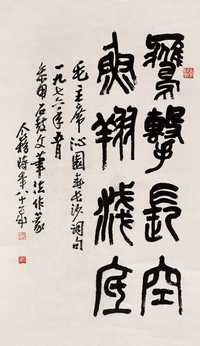 鹰击长空
鱼翔浅底
毛主席沁园春长沙词句
一九七六年五月
参用石鼓文笔法作篆
个簃时年八十